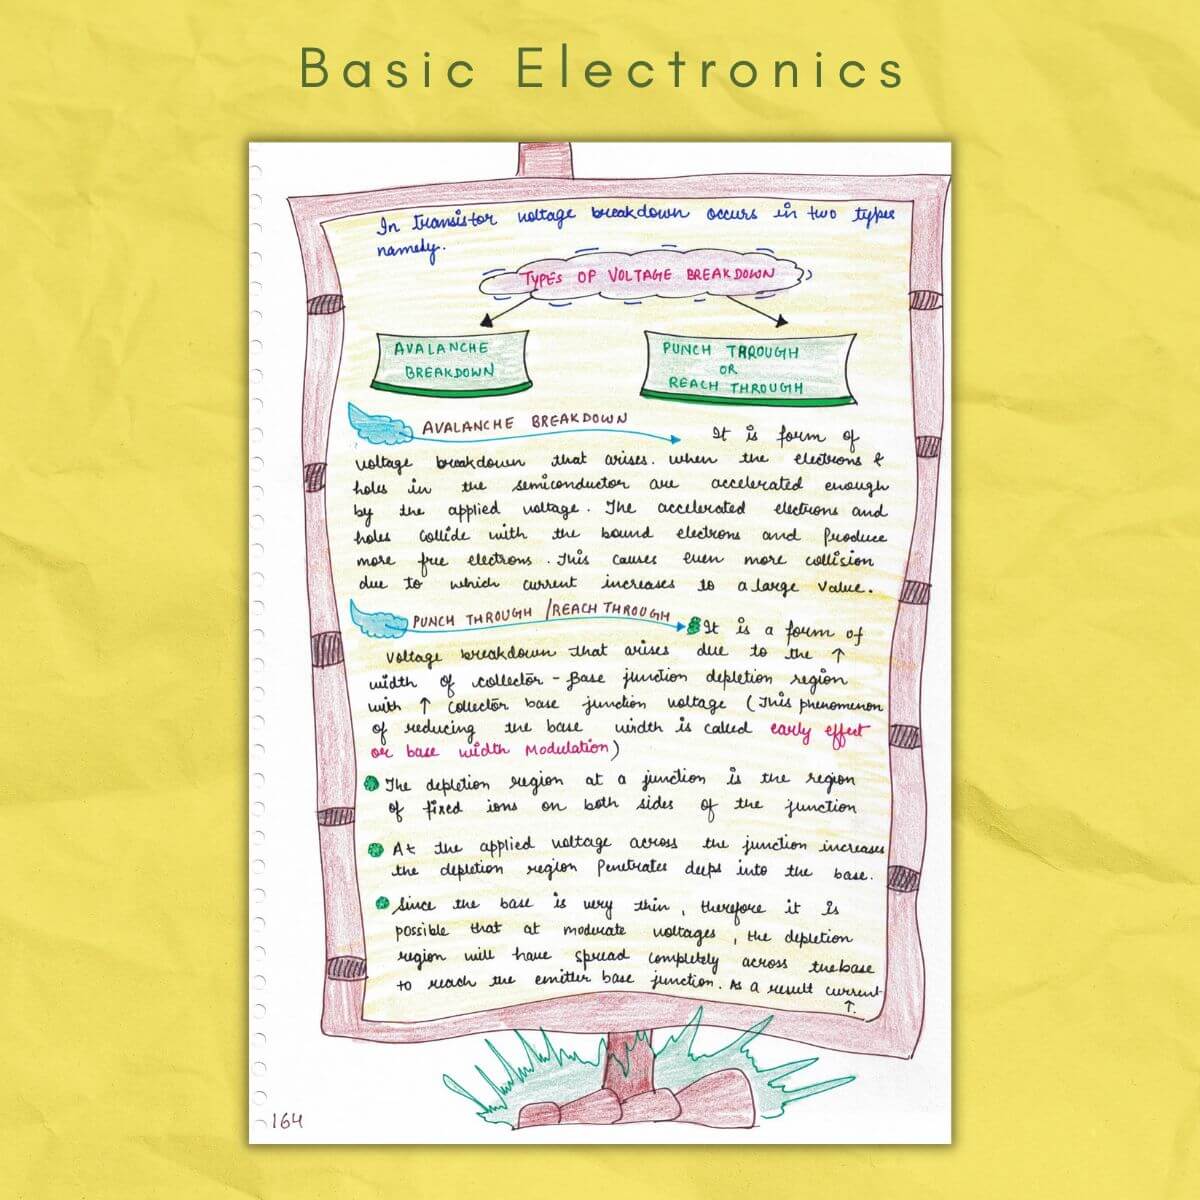 Basic Electronics
In transistor voltage breakdown occurs in two types
namely.
TYPES OF VOLTAGE BREAKDOWN
AVALANCHE
BREAKDOWN
PUNCH THROUGH
OR
REACH THROUGH
AVALANCHE BREAKDOWN
It is form of
voltage breakdown that arises. when the electrons &
holes in the semiconductor are accelerated enough
by the applied voltage. The accelerated electrons and
holes collide with the bound electrons and Produce
more free electrons. This causes even more collision
due to which current increases to a large value.
PUNCH THROUGH /REACH THROUGH
It is a form of
voltage breakdown that arises due to the ↑
width of collector - Base junction depletion region
with ↑ collector base junction voltage (This phenomenon
of reducing the base width is called early effect
or base width Modulation)
The depletion region at a junction is the region
of fixed ions on both sides of the junction
At the applied voltage across the junction increases
the depletion region Penetrates deeps into the base.
Since the base is very thin, therefore it is
possible that at moderate voltages, the depletion
region will have spread completely across the base
to reach the emitter base junction. As a result current
↑.
164